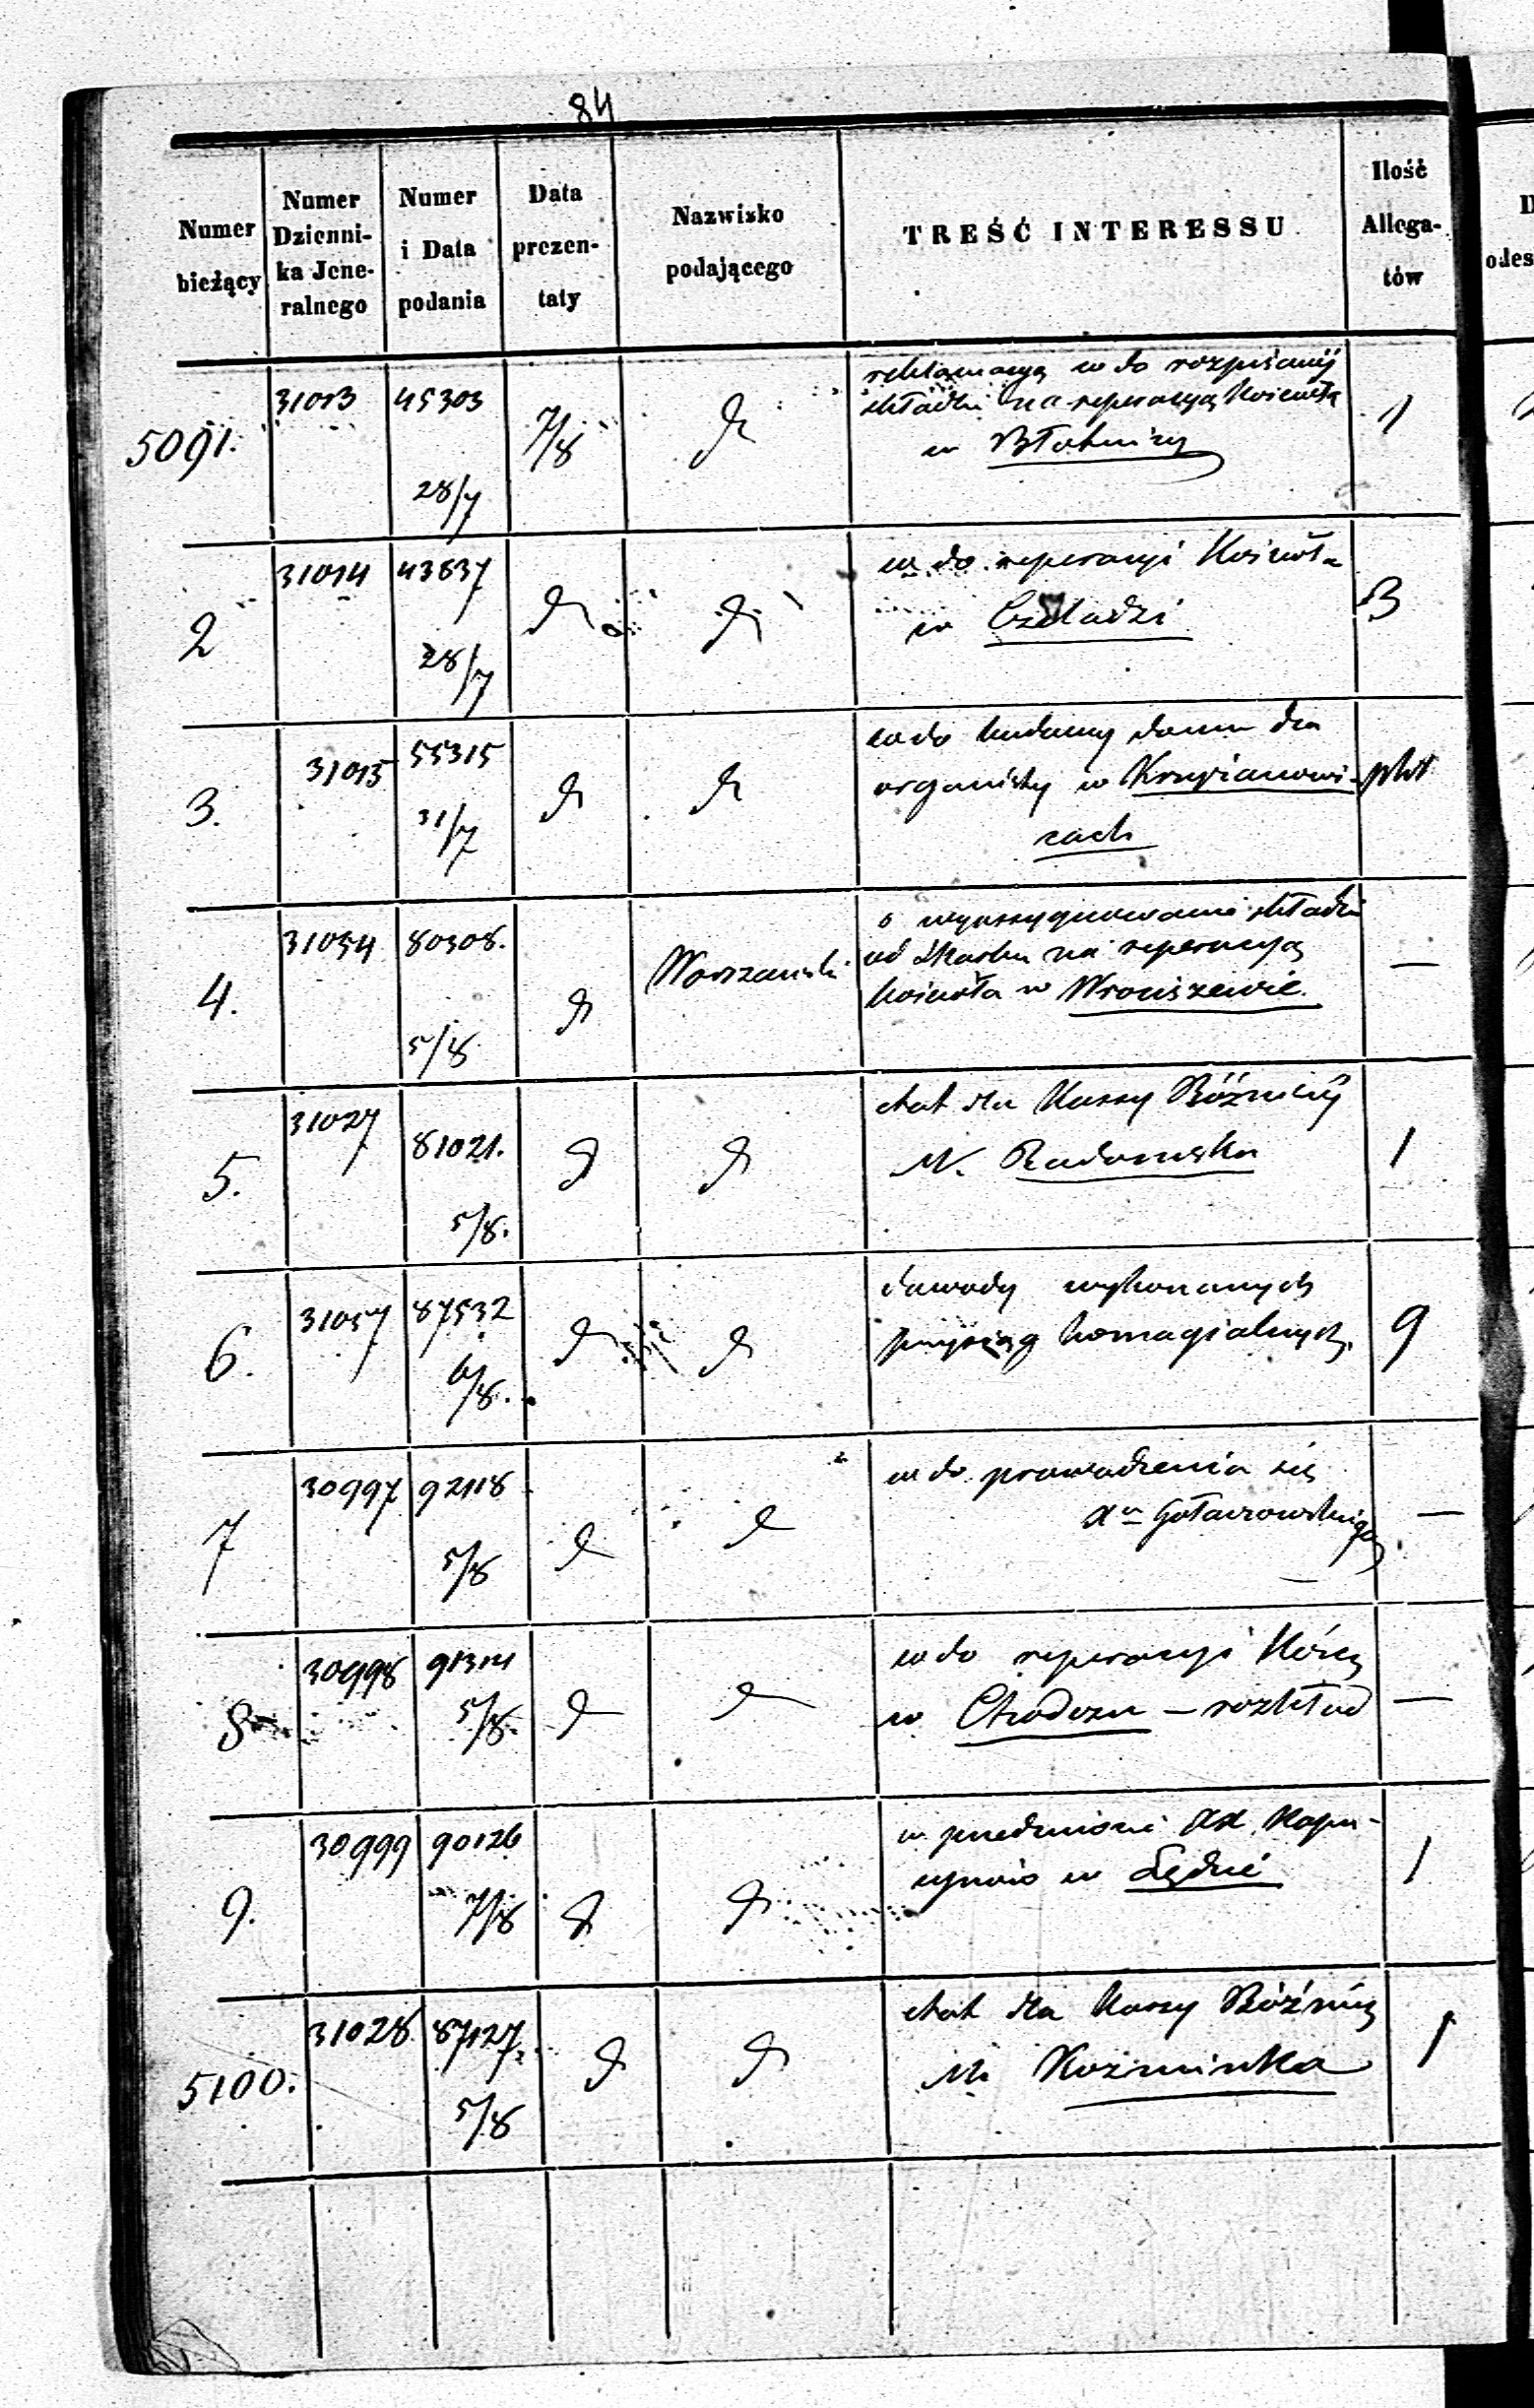 84
Numer bieżący
Numer Dzienni-ka Jene-ralnego
Numer i Data podania
Data prezen-taty
Nazwisko podającego
TREŚĆ INTERESSU
Ilość Allega-tów
5091. 31013 45303 28/7 7/8 dt
reklamacya w do rozpisanéj
składki na reperacyą Kościoła
w Błotnicy
1
2 31014 43837 28/7 dt dt
w do reperacyi Kościoła
w Czeladzi
3
3. 31015 55315 31/7 dt dt
w do budowy domu dla
organisty w
cach
plik
4. 31034 80308. 5/8 dt Warszawski
o wyassygnowanie składki
od Skarbu na reperacyą
kościoła w Wrociszewie.
—
5. 31027 81021. 5/8. dt dt
etat dla Kassy Bóżniczéj
M. Radomska
1
6. 31057 87532 6/8. dt dt
dowody wykonanych
przysiąg homagialnych.
9
7 30997 92118 5/8 dt dt
w do prowadzenia się
Xa
—
8 30998 91314 5/8. dt dt
w do reperacyi
w Chodczu – rozkład
—
9. 30999 90126 7/8 dt dt
w przedmiocie XX. Kapu-
cynów w Lędzie
1
5100. 31028 87127 5/8 dt dt
etat dla Kassy Bóźnicz
M. Koźminka
1